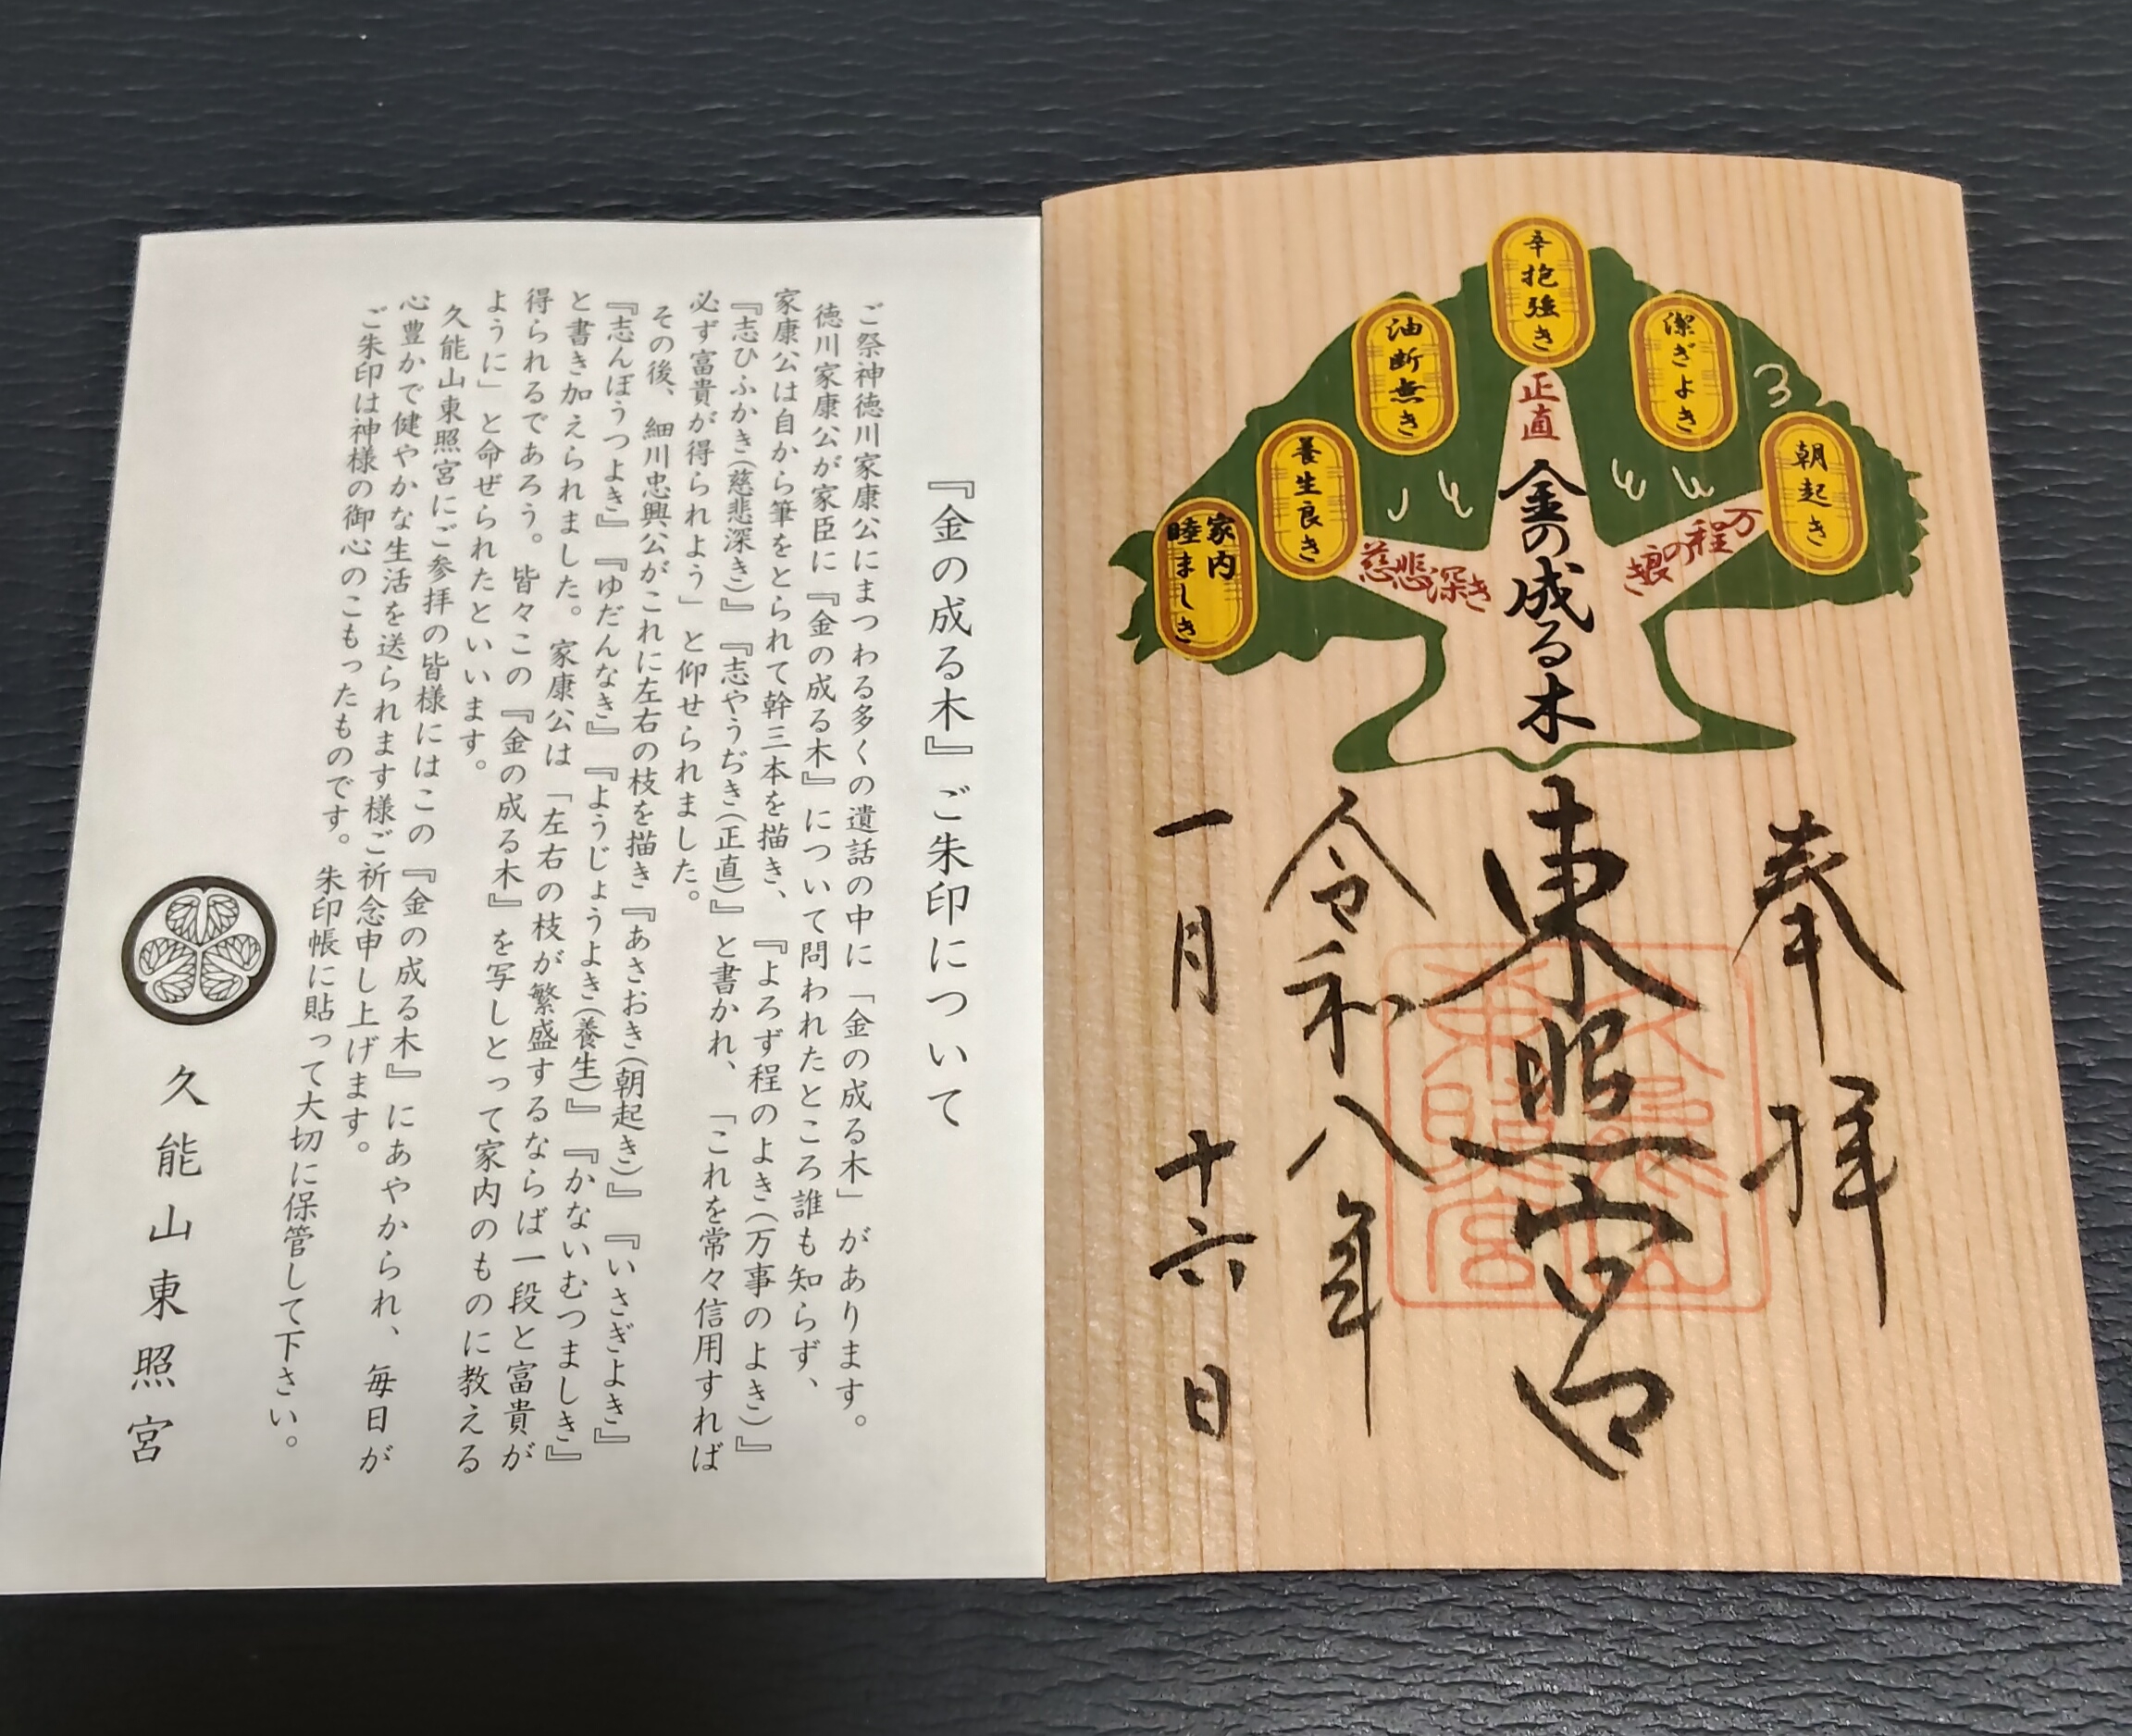 『金の成る木』ご朱印について
ご祭神徳川家康公にまつわる多くの遺話の中に「金の成る木」があります。
徳川家康公が家臣に『金の成る木』について問われたところ誰も知らず、
家康公は自から筆をとられて幹三本を描き、『よろず程のよき(万事のよき)』
『志ひふかき(慈悲深き)』『志やうぢき(正直)』と書かれ、「これを常々信用すれば
必ず富貴が得られよう」と仰せられました。
その後、細川忠興公がこれに左右の枝を描き『あさおき(朝起き)』『いさぎよき』
『志んぼうつよき』『ゆだんなき』『ようじょうよき(養生)』『かないむつましき』
と書き加えられました。家康公は「左右の枝が繁盛するならば一段と富貴が
得られるであろう。皆々この『金の成る木』を写しとって家内のものに教える
ように」と命ぜられたといいます。
久能山東照宮にご参拝の皆様にはこの『金の成る木』にあやかられ、毎日が
心豊かで健やかな生活を送られます様ご祈念申し上げます。
ご朱印は神様の御心のこもったものです。朱印帳に貼って大切に保管して下さい。
久能山東照宮
朝起き
潔ぎよき
辛抱強き
油断無き
養生良き
家内
睦ましき
万程の良き
正直
慈悲深き
金の成る木
奉拝
東照宮
令和八年
一月十六日